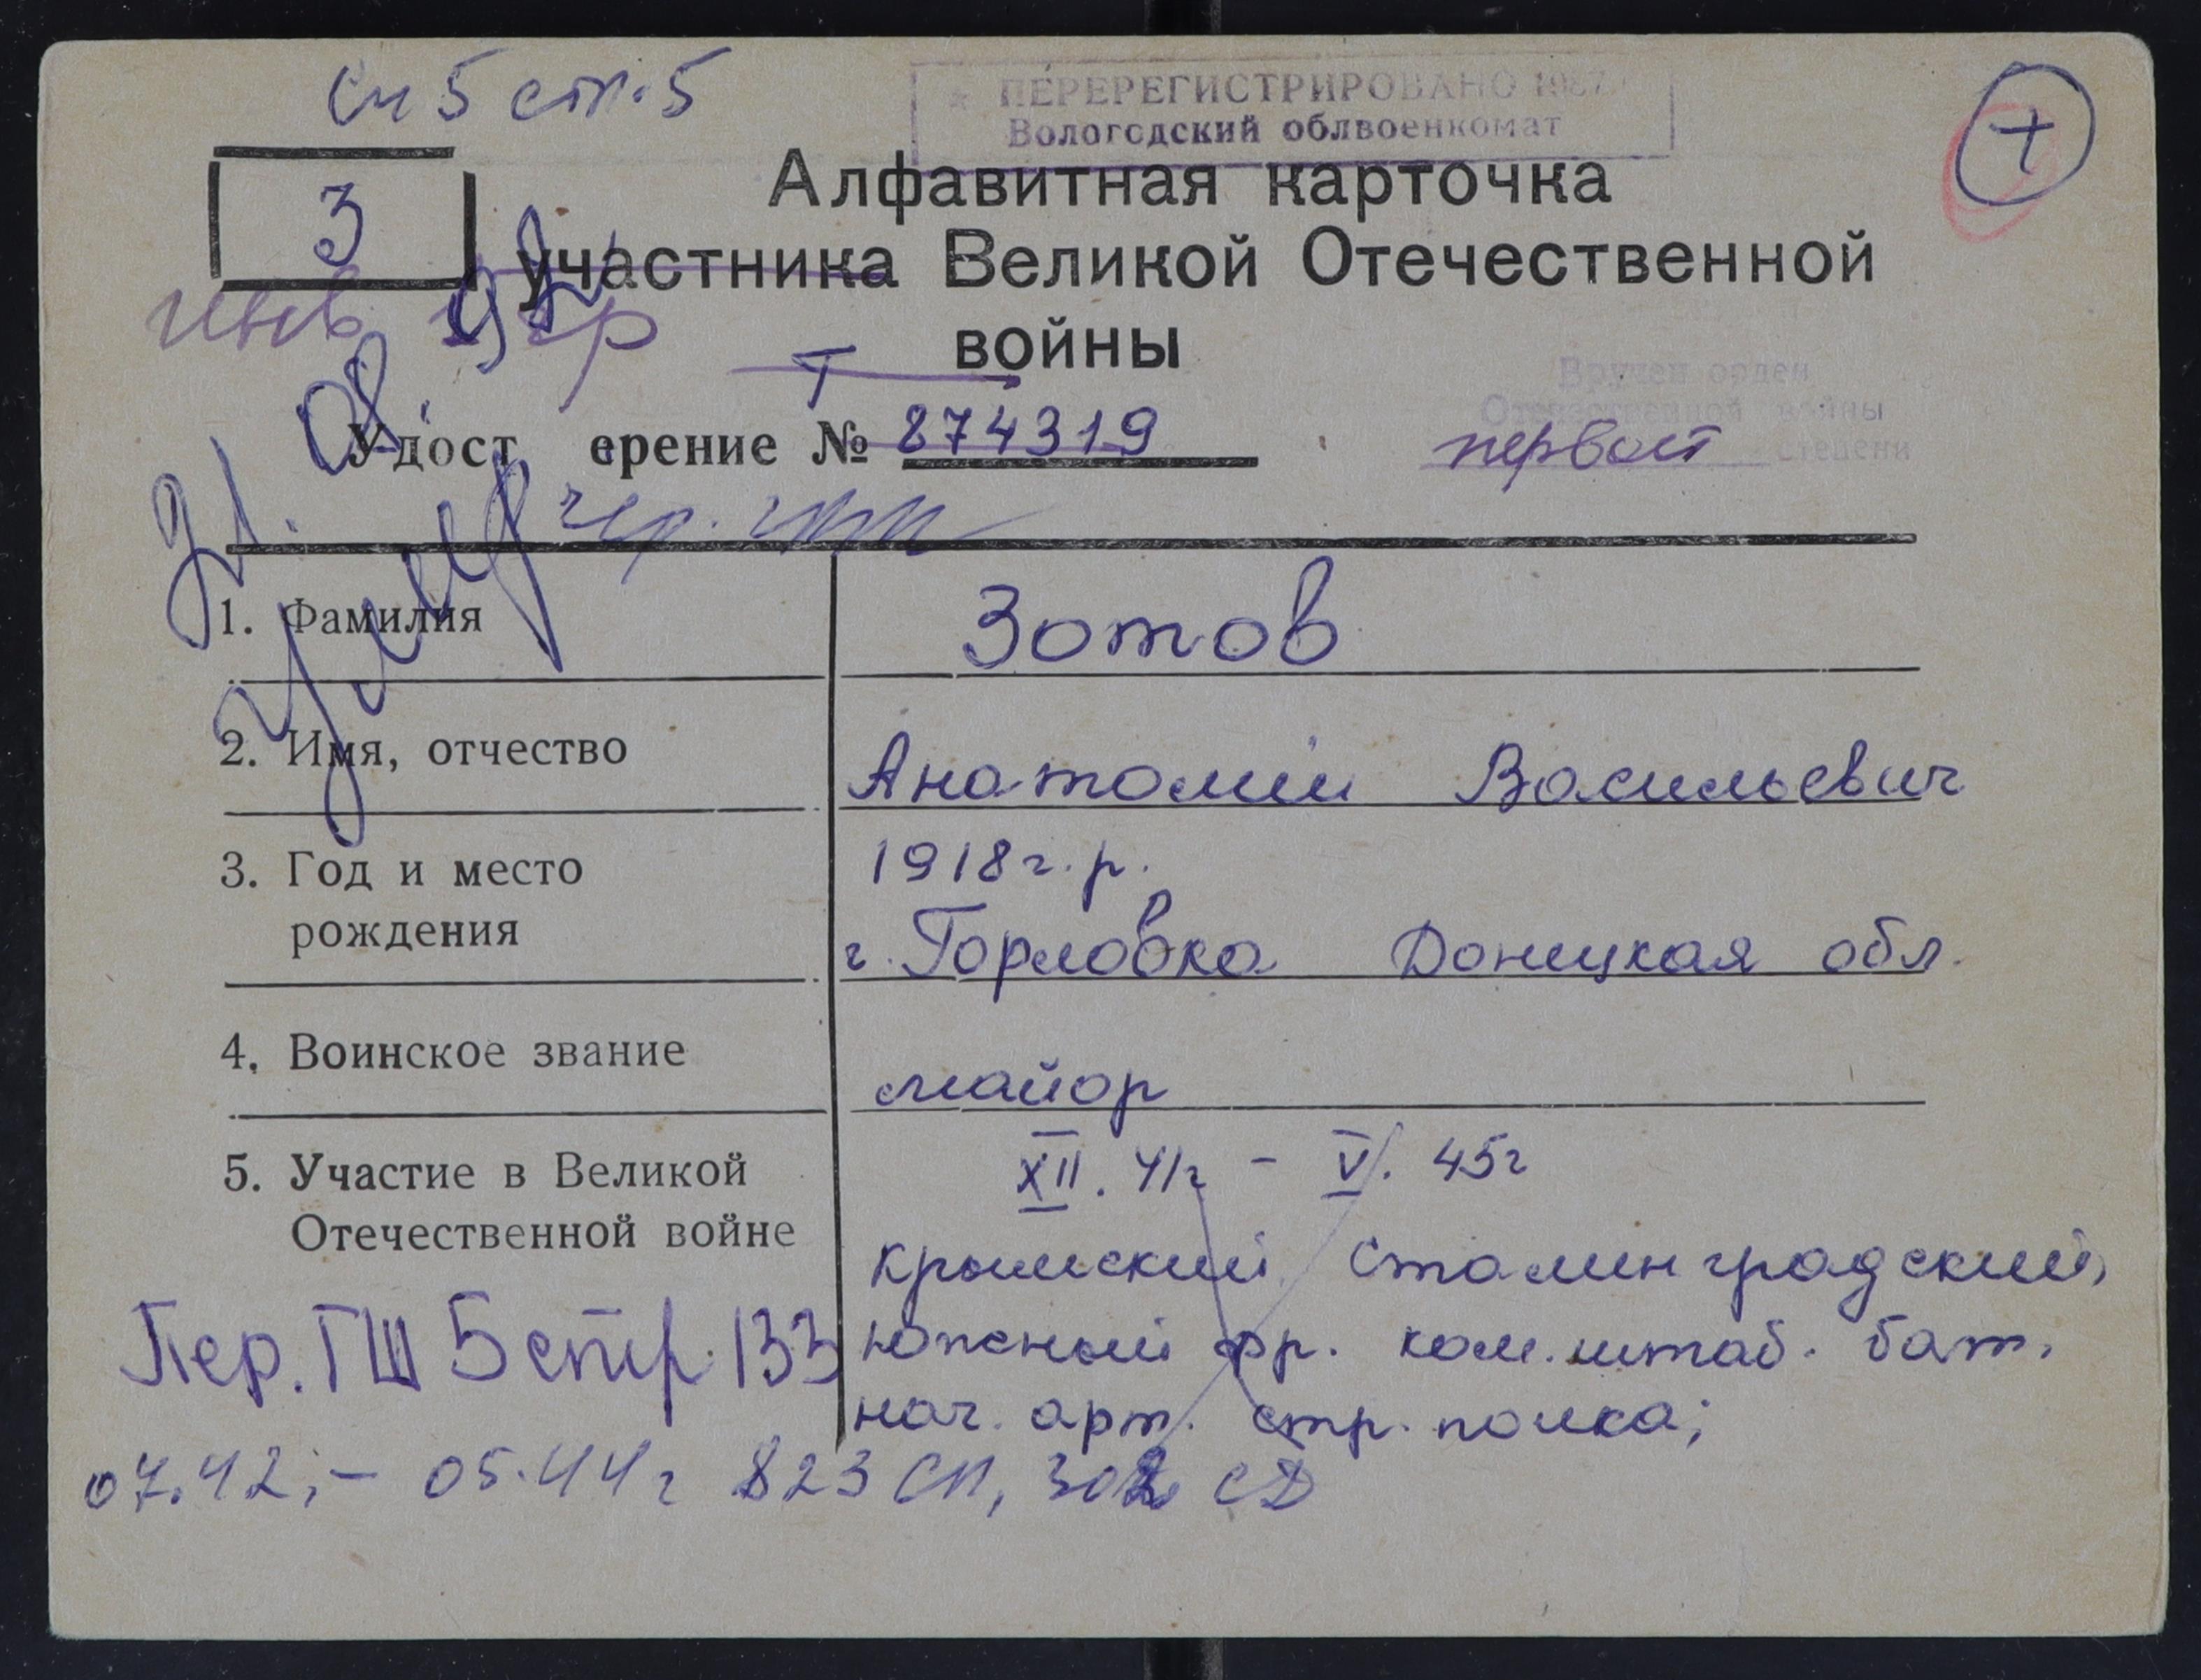 Сп 5 стр. 5
ПЕРЕРЕГИСТРИРОВАНО 1987
Вологодский облвоенкомат
+
З
Алфавитная карточка
участника Великой Отечественной
войны
инв гр
Т
Вручен орден
Отечественной войны
первой степени
Удост ерение № 874319
Умер
1. Фамилия
Зотов
2. Имя, отчество
Анатолий Васильевич
3. Год и место
рождения
1918 г.р.
г. Горловка Донецкая обл.
4. Воинское звание
майор
5. Участие в Великой
Отечественной войне
XII. 41г - V. 45г
Крымский Сталинградский,
Южный фр. ком. штаб. бат.
нач. арт. стр. полка;
Пер. ГШ 5 стр. 133
07.42; - 05.44г 823 СП, 302 СД